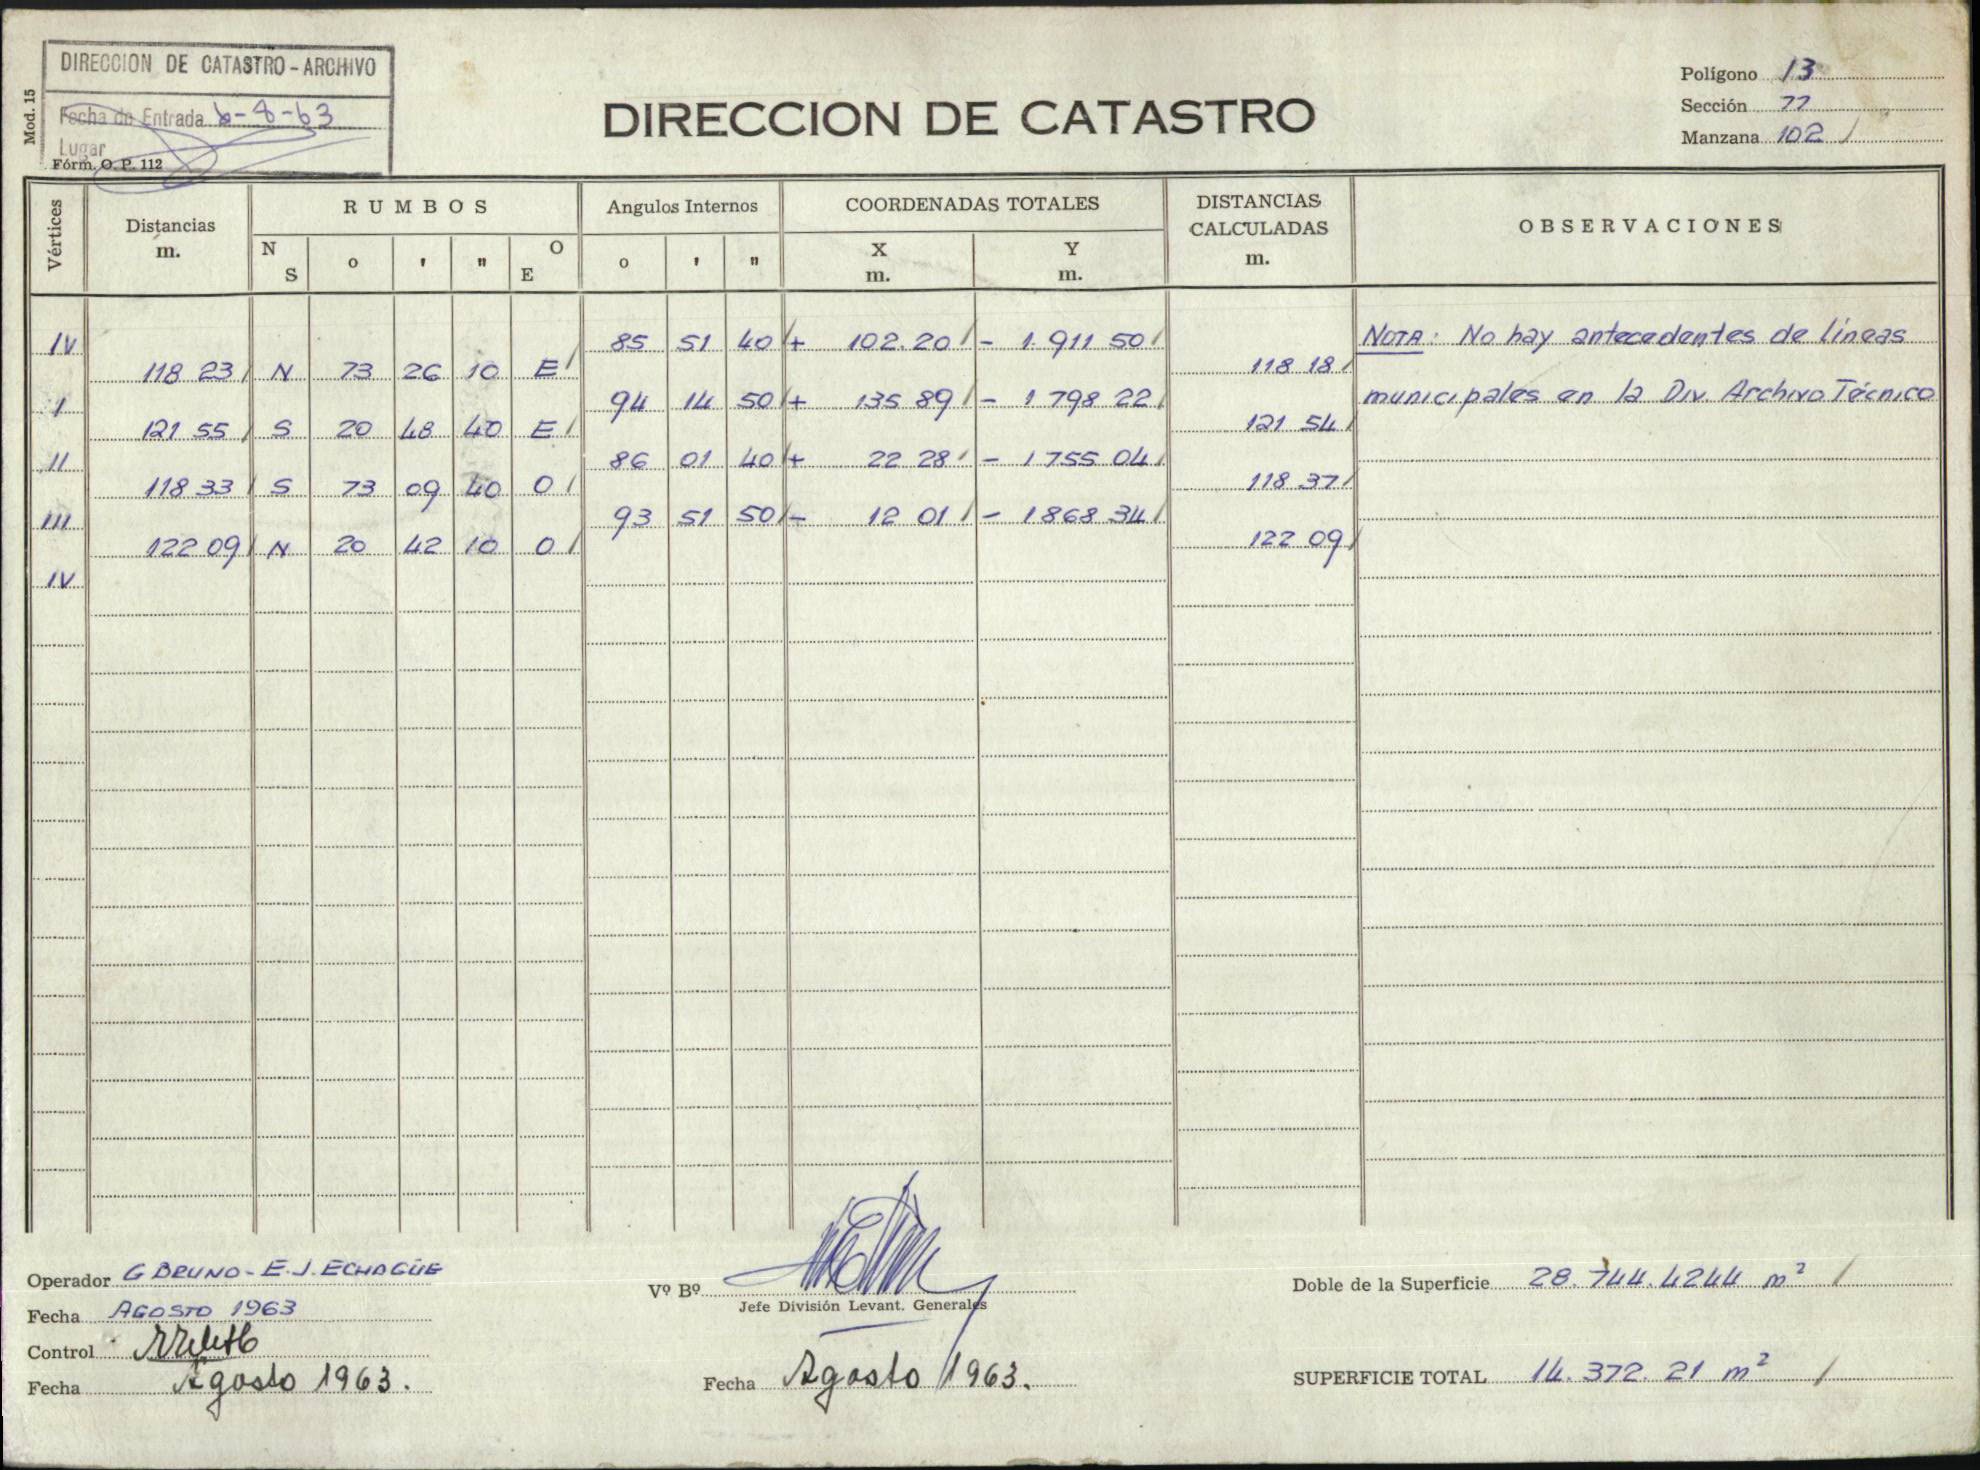 DIRECCION DE CATASTRO - ARCHIVO
Fecha de Entrada 6-8-63
Lugar
Mod. 15
Fórm. O. P. 112
DIRECCION DE CATASTRO
Polígono 13
Sección 77
Manzana 102 /
Vértices
Distancias m.
RUMBOS
N S o ' " O E
Angulos Internos
o ' "
COORDENADAS TOTALES
X m. Y m.
DISTANCIAS CALCULADAS m.
OBSERVACIONES
IV 85 51 40 + 102.20 / - 1.911 50 / NOTA: No hay antecedentes de líneas
118 23 / N 73 26 10 E / 118 18 /
I 94 14 50 / + 135 89 / - 1 798 22 / municipales en la Div. Archivo Técnico
121 55 / S 20 48 40 E / 121 54 /
II 86 01 40 + 22 28 / - 1755 04 /
118 33 / S 73 09 40 O / 118 37 /
III 93 51 50 / - 12 01 / - 1868 34 /
122 09 / N 20 42 10 O / 122 09 /
IV
Operador G BRUNO - E. J. ECHAGÜE
Fecha AGOSTO 1963
Control
Fecha Agosto 1963.
Vº Bº
Jefe División Levant. Generales
Fecha Agosto 1963.
Doble de la Superficie 28.744.4244 m² /
SUPERFICIE TOTAL 14.372.21 m² /